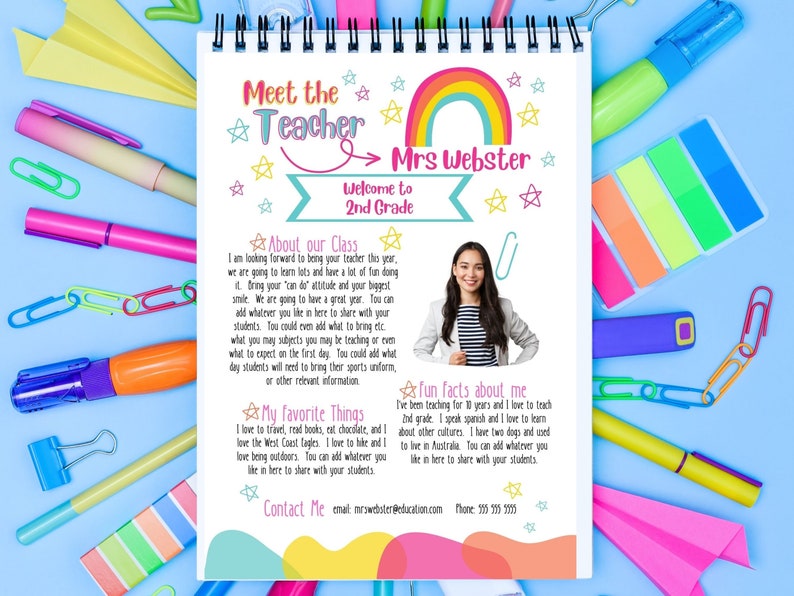 Meet the
Teacher
Mrs Webster
Welcome to
2nd Grade
About our Class
I am looking forward to being your teacher this year,
we are going to learn lots and have a lot of fun doing
it. Bring your "can do" attitude and your biggest
smile. We are going to have a great year. You can
add whatever you like in here to share with your
students. You could even add what to bring etc.
what you may subjects you may be teaching or even
what to expect on the first day. You could add what
day students will need to bring their sports uniform,
or other relevant information.
My Favorite Things
I love to travel, read books, eat chocolate, and I
love the West Coast Eagles. I love to hike and I
love being outdoors. You can add whatever you
like in here to share with your students.
Fun Facts about me
I've been teaching for 10 years and I love to teach
2nd grade. I speak spanish and I love to learn
about other cultures. I have two dogs and used
to live in Australia. You can add whatever you
like in here to share with your students.
Contact Me email: mrswebster@education.com Phone: 555 555 5555